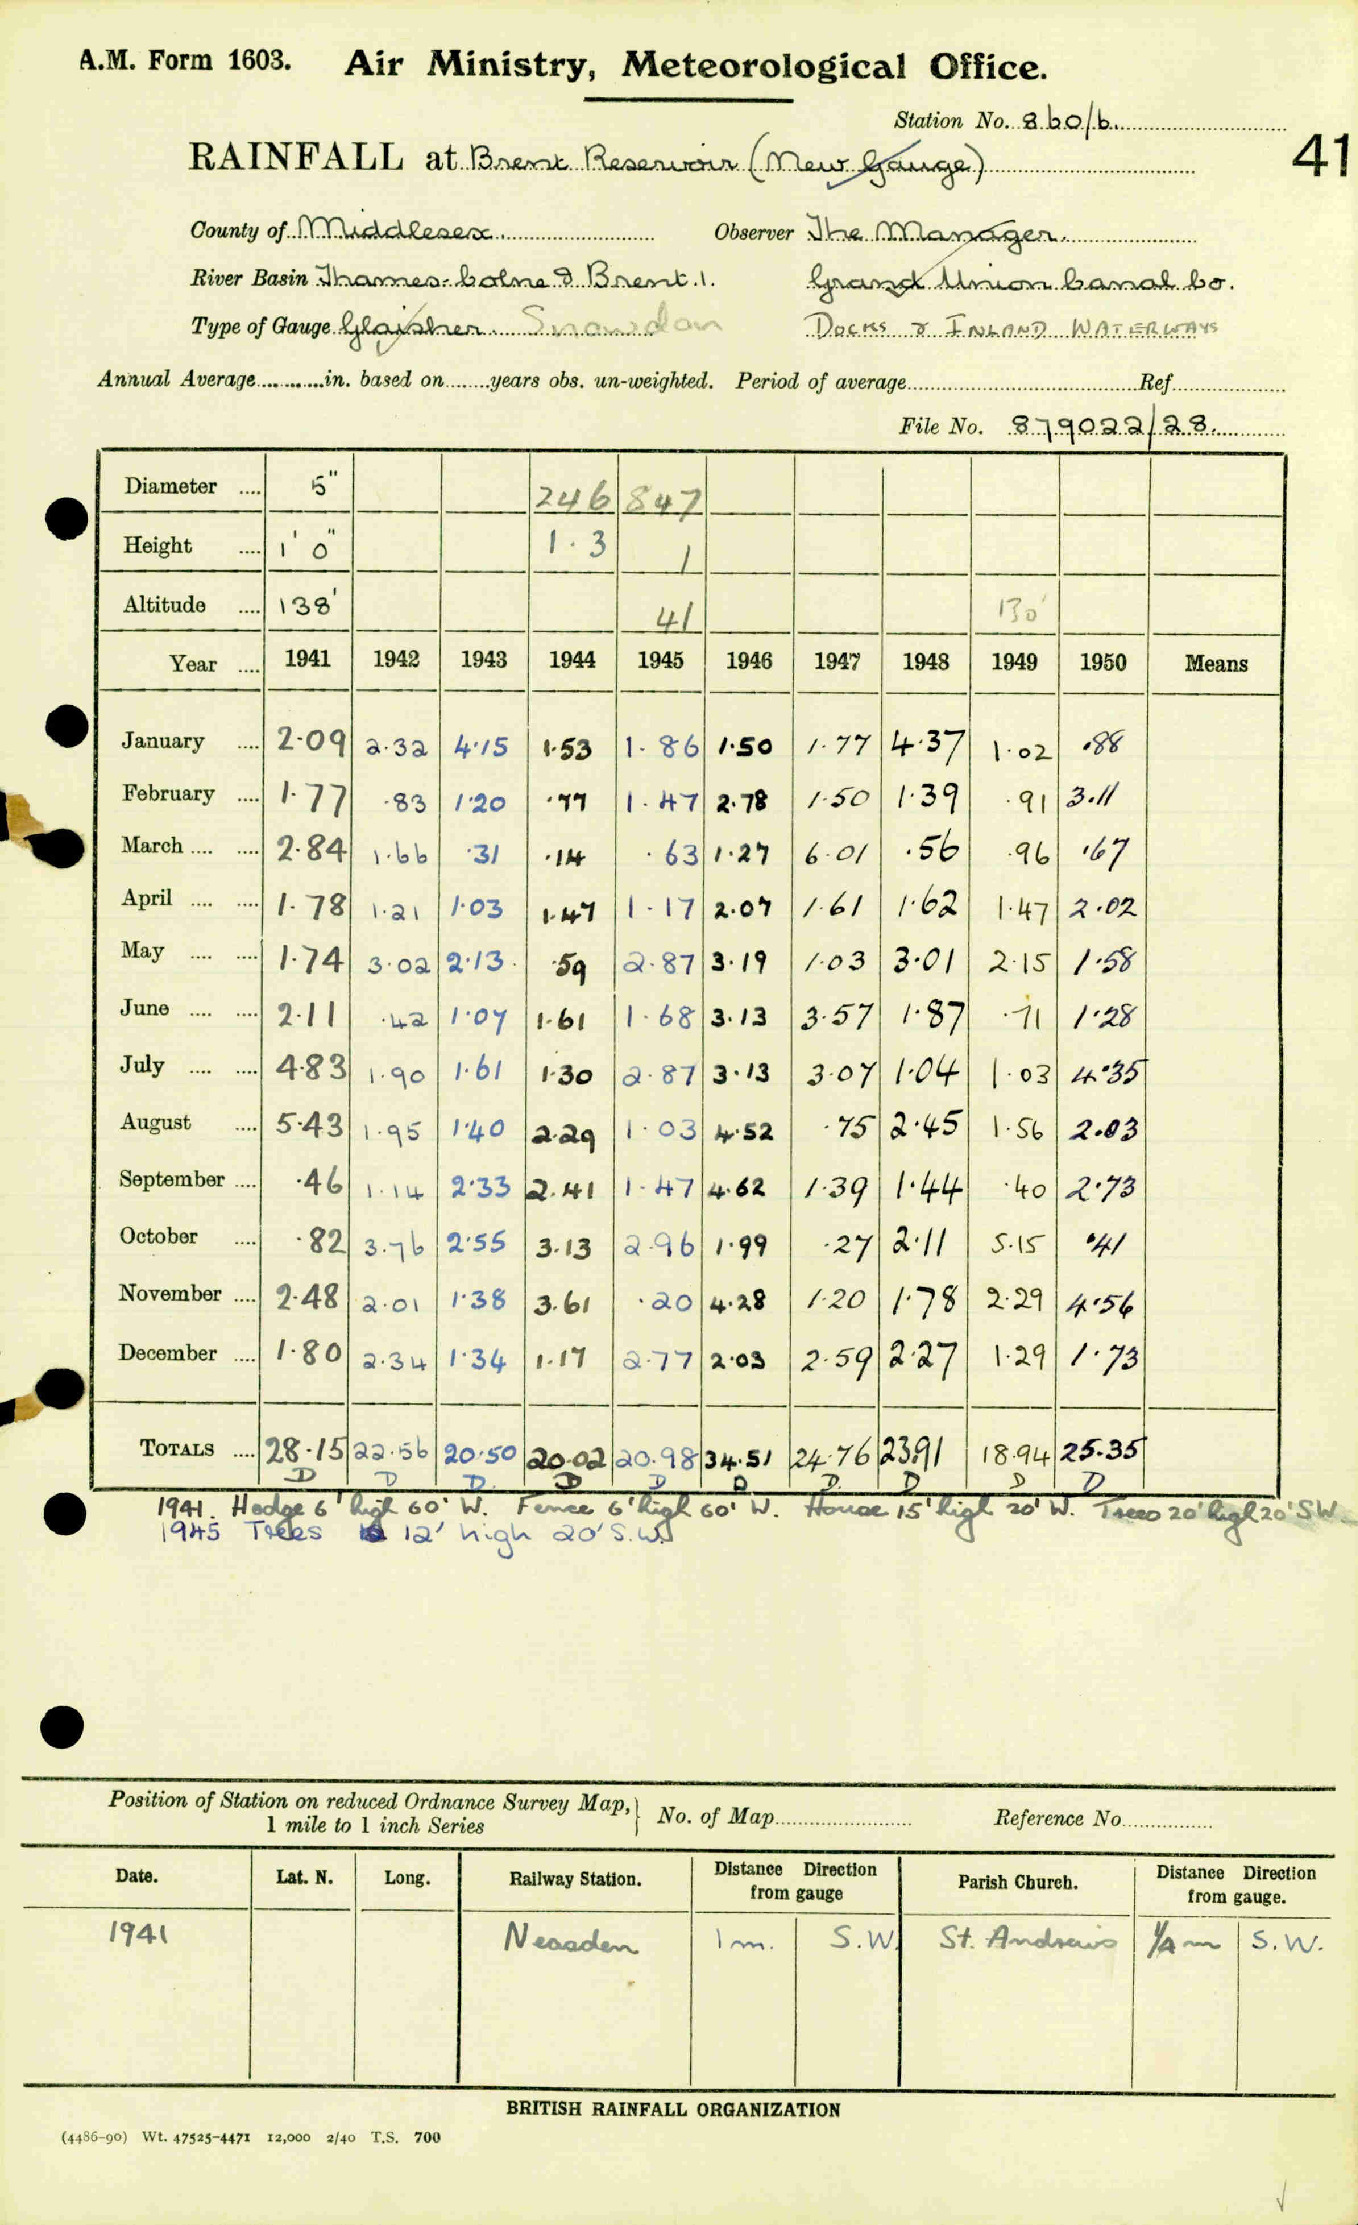 A.M. Form 1603. Air Ministry, Meteorological Office.
Station No. 860/6
41
RAINFALL at Brent Reservoir (New Gauge)
County of Middlesex Observer The Manager
River Basin Thames-Colne & Brent.1. Grand Union Canal Co.
Type of Gauge Glaisher Snowdon DOCKS & INLAND WATERWAYS
Annual Average in. based on years obs. un-weighted. Period of average Ref
File No. 879022/28
Diameter 5" 246 847
Height 1' 0" 1.3 1
Altitude 138' 41 130'
Year 1941 1942 1943 1944 1945 1946 1947 1948 1949 1950 Means
January 2.09 2.32 4.15 1.53 1.86 1.50 1.77 4.37 1.02 .88
February 1.77 .83 1.20 .77 1.47 2.78 1.50 1.39 .91 3.11
March 2.84 1.66 .31 .14 .63 1.27 6.01 .56 .96 .67
April 1.78 1.21 1.03 1.47 1.17 2.07 1.61 1.62 1.47 2.02
May 1.74 3.02 2.13 .59 2.87 3.19 1.03 3.01 2.15 1.58
June 2.11 .42 1.07 1.61 1.68 3.13 3.57 1.87 .71 1.28
July 4.83 1.90 1.61 1.30 2.87 3.13 3.07 1.04 1.03 4.35
August 5.43 1.95 1.40 2.29 1.03 4.52 .75 2.45 1.56 2.03
September .46 1.14 2.33 2.41 1.47 4.62 1.39 1.44 .40 2.73
October .82 3.76 2.55 3.13 2.96 1.99 .27 2.11 5.15 .41
November 2.48 2.01 1.38 3.61 .20 4.28 1.20 1.78 2.29 4.56
December 1.80 2.34 1.34 1.17 2.77 2.03 2.59 2.27 1.29 1.73
TOTALS 28.15 22.56 20.50 20.02 20.98 34.51 24.76 23.91 18.94 25.35
D D D D D D D D D D
1941. Hedge 6' high 60' W. Fence 6' high 60' W. House 15' high 20' W. Trees 20' high 20' SW.
1945 Trees 12' high 20' S.W.
Position of Station on reduced Ordnance Survey Map, No. of Map Reference No.
1 mile to 1 inch Series
Date. Lat. N. Long. Railway Station. Distance Direction from gauge Parish Church. Distance Direction from gauge.
1941 Neasden 1 m. S.W. St. Andrews 1/4 m S.W.
BRITISH RAINFALL ORGANIZATION
(4486-90) Wt. 47525-4471 12,000 2/40 T.S. 700